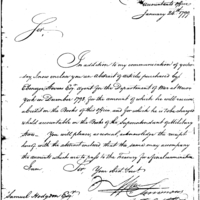 Accountants Office
January 26th 1799
Sir,
In addition to my communication of yesterday I now enclose you an Abstract of articles purchased by
Ebenezer Stevens Esqr agent for the Department of War at New
York in December 1798 for the amount of which he will receive
credit on the Books of this Office and for which he is to be charged
held accountable on the Books of the Superintendent of Military
Stores. You will please, as usual, acknowledge the
with the account returned, and that the same may accompany the
accounts which are to go to the Treasury for
I am Sir
Your Obt Servt
Samuel Hodgdon Esqr